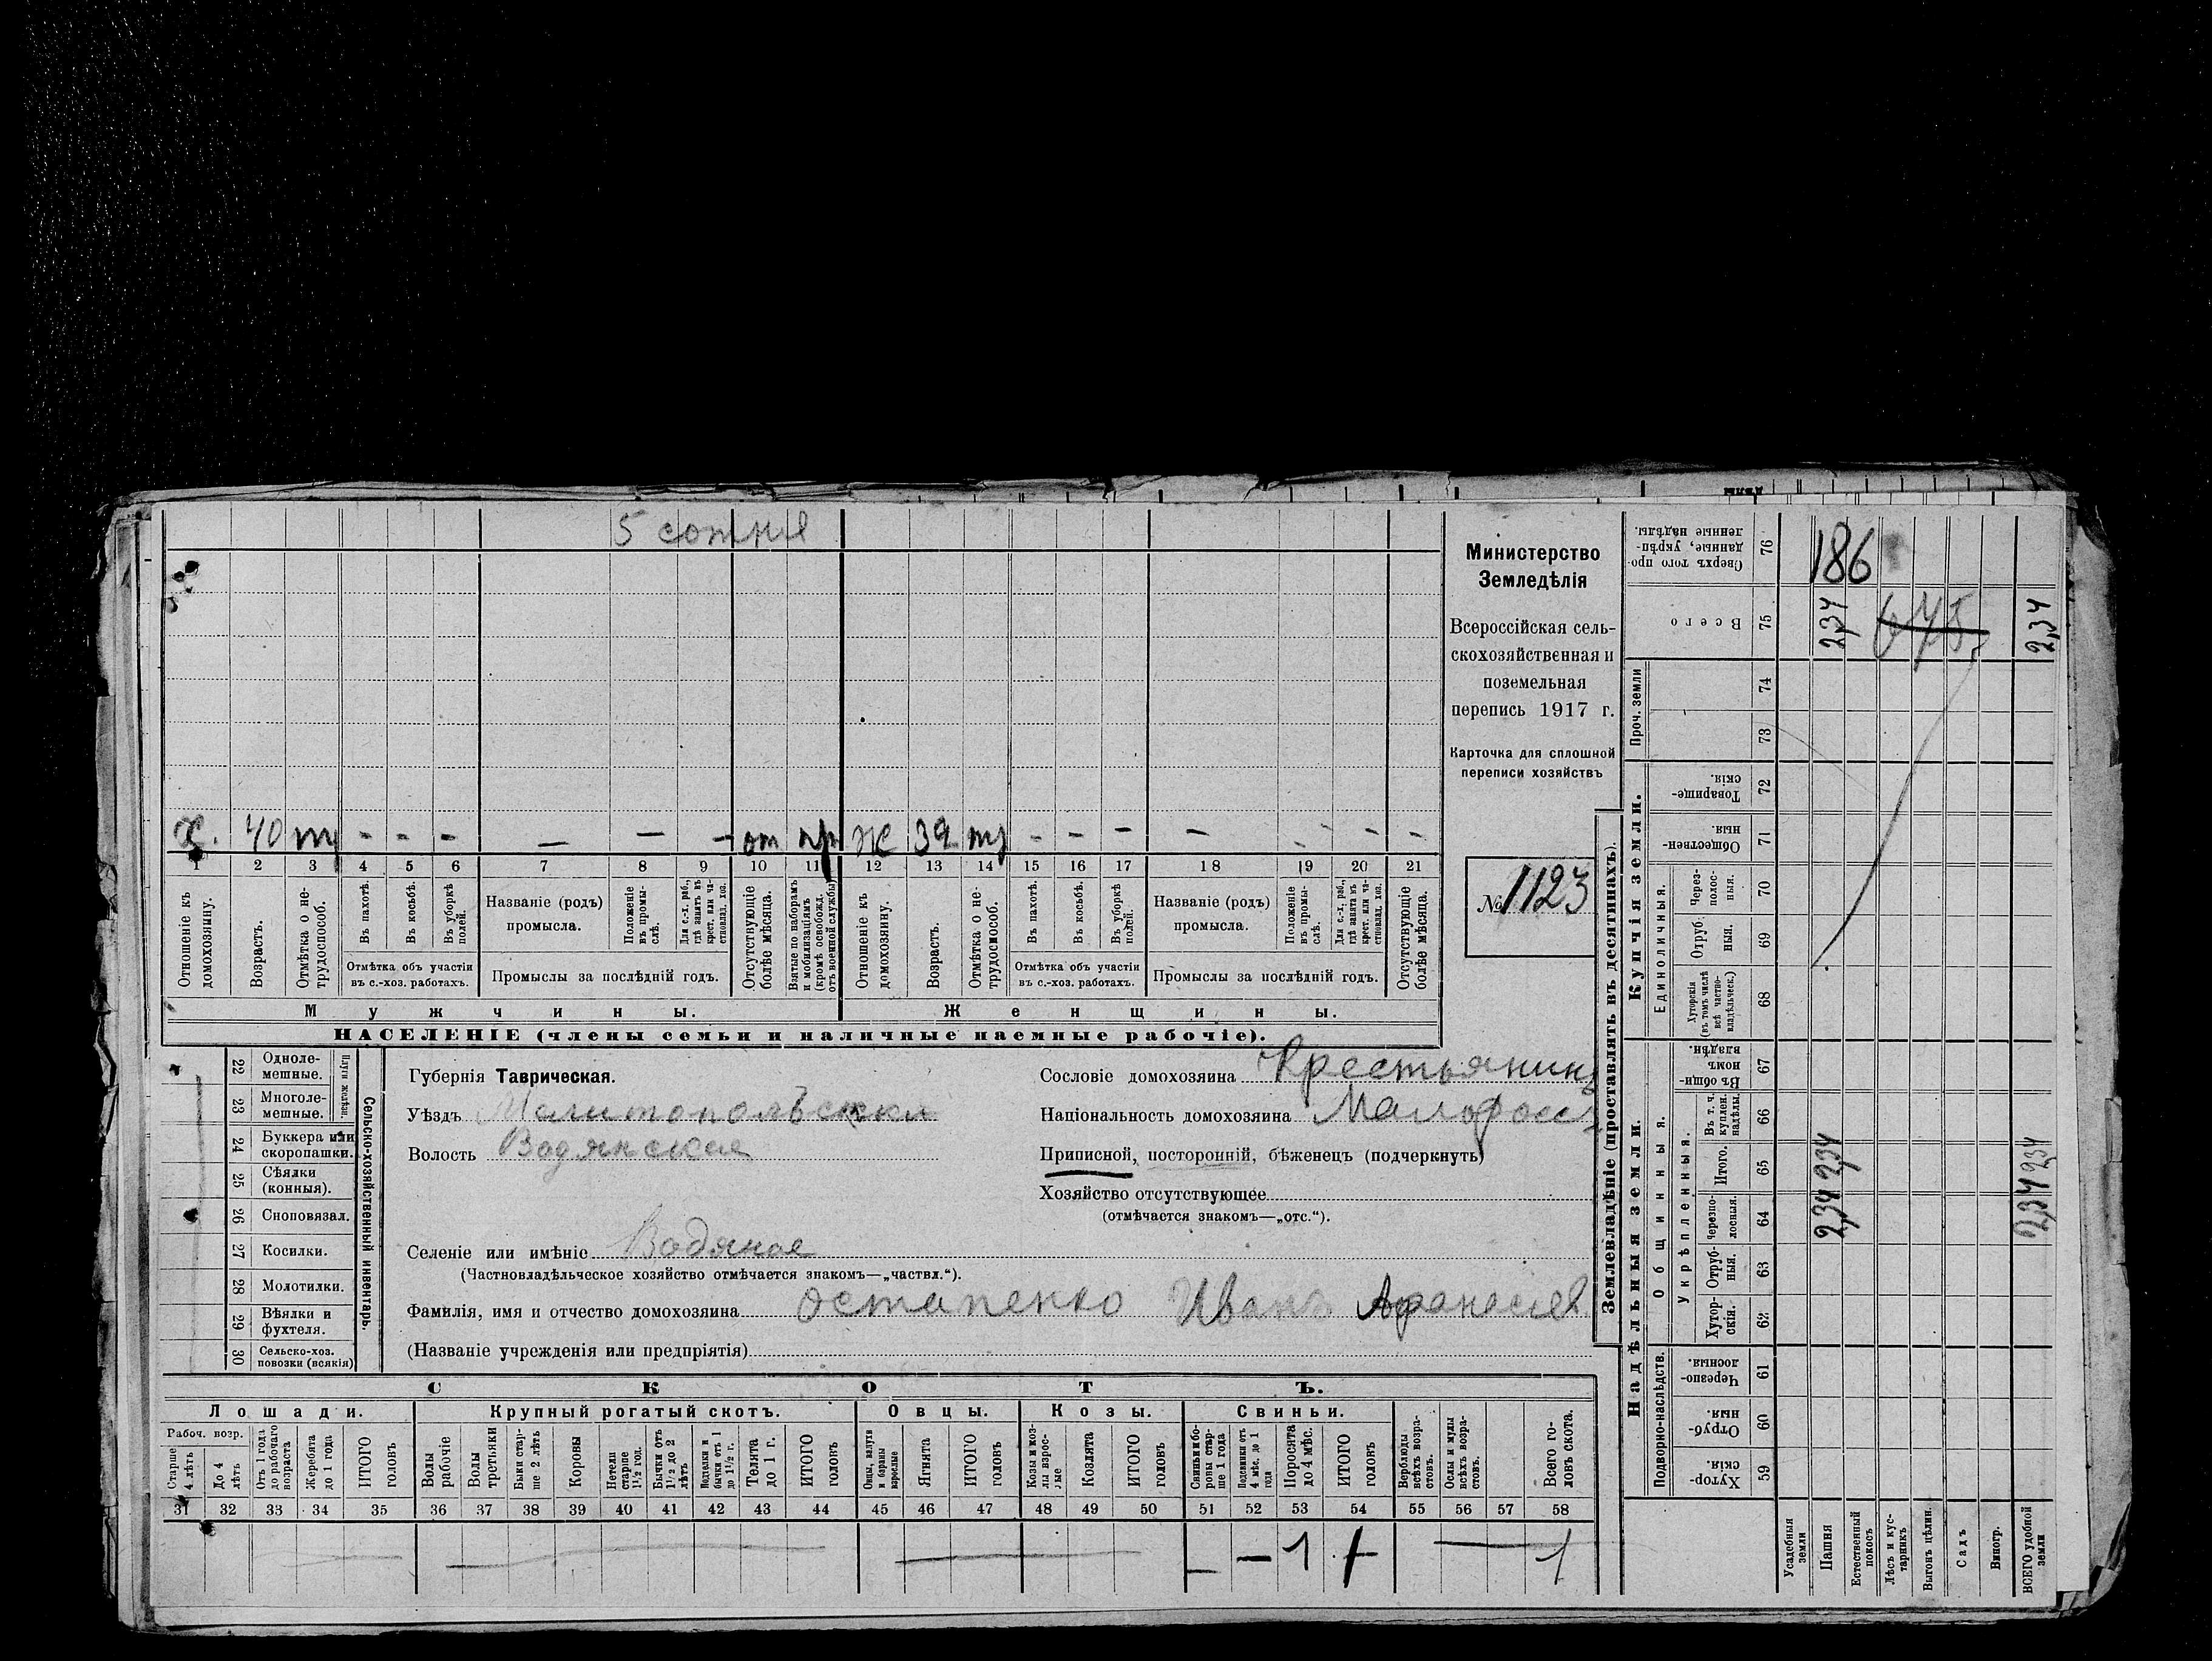 5 сотня
х. 40 тр - - - — — - от пр ж 39 тр - - - - - - -
1 2 3 4 5 6 7 8 9 10 11 12 13 14 15 16 17 18 19 20 21
Отношеніе къ домохозяину.
Возрастъ.
Отмѣтка о не-трудоспособ.
Въ пахотѣ.
Въ косьбѣ.
Въ уборкѣ полей.
Отмѣтка объ участіи
въ с.-хоз. работахъ.
Названіе (родъ)
промысла.
Положеніе въ промы-слѣ.
Для с.-х. раб., гдѣ занятъ въ крест. или ча-стновлад. хоз.
Промыслы за послѣдній годъ.
Отсутствующіе болѣе мѣсяца.
Взятые по наборамъ и мобилизаціямъ (кромѣ освобожд. отъ военной службы)
Отношеніе къ домохозяину.
Возрастъ.
Отмѣтка о не-трудоспособ.
Въ пахотѣ.
Въ косьбѣ.
Въ уборкѣ полей.
Отмѣтка объ участіи
въ с.-хоз. работахъ.
Названіе (родъ)
промысла.
Положеніе въ промы-слѣ.
Для с.-х. раб., гдѣ занята въ крест. или ча-стновлад. хоз.
Промыслы за послѣдній годъ.
Отсутствующіе болѣе мѣсяца.
Мужчины. Женщины.
НАСЕЛЕНІЕ (члены семьи и наличные наемные рабочіе).
Министерство
Земледѣлія
Всероссійская сель-
скохозяйственная и
поземельная
перепись 1917 г.
Карточка для сплошной
переписи хозяйствъ
№ 1123
22 Одноле-мешные.
23 Многоле-мешные.
Плуги желѣзн.
24 Буккера или скоропашки.
25 Сѣялки (конныя).
26 Сноповязал.
27 Косилки.
28 Молотилки.
29 Вѣялки и фухтеля.
30 Сельско-хоз. повозки (всякія)
Сельско-хозяйственный инвентарь.
Губернія Таврическая.
Уѣздъ Мелитопольскки
Волость Водянская
Селеніе или имѣніе Водяное
(Частновладѣльческое хозяйство отмѣчается знакомъ—„частвл.“).
Фамилія, имя и отчество домохозяина Остапенко Иванъ Афанасіев
(Названіе учрежденія или предпріятія)
Сословіе домохозяина Крестьянинъ
Національность домохозяина Малоросс
Приписной, посторонній, бѣженецъ (подчеркнуть)
Хозяйство отсутствующее
(отмѣчается знакомъ—„отс.“).
СКОТЪ.
Лошади. Крупный рогатый скотъ. Овцы. Козы. Свиньи.
Рабоч. возр.
Старше 4 лѣтъ
До 4 лѣтъ
Отъ 1 года до рабочаго возраста
Жеребята до 1 года
ИТОГО головъ
Волы рабочіе
Волы третьяки
Быки стар-ше 2 лѣтъ
Коровы
Нетели старше 1½ год.
Бычки отъ 1½ до 2 лѣтъ
Подтелки и бычки отъ 1 до 1½ г.
Телята до 1 г.
ИТОГО головъ
Овцы, валухи и бараны взрослые
Ягнята
ИТОГО головъ
Козы и коз-лы взрос-лые
Козлята
ИТОГО головъ
Свиньи и бо-ровы стар-ше 1 года
Подсвинки отъ 4 мѣс. до 1 года
Поросята до 4 мѣс.
ИТОГО головъ
Верблюды всѣхъ возра-стовъ.
Ослы и мулы всѣхъ возра-стовъ.
Всего го-ловъ скота.
31 32 33 34 35 36 37 38 39 40 41 42 43 44 45 46 47 48 49 50 51 52 53 54 55 56 57 58
— — — — — 1 1 — 1
Землевладѣніе (проставлять въ десятинахъ).
Надѣльныя земли. Купчія земли. Проч. земли
Подворно-наслѣдств.
Общинныя.
Укрѣпленныя.
Единоличныя.
Хутор-скія. 59
Отруб-ныя. 60
Черезпо-лосныя 61
Хутор-скія. 62
Отруб-ныя. 63
Черезпо-лосныя. 64
Итого. 65
Въ т. ч. куплен. надѣлы. 66
Въ общи-номъ владѣн. 67
Хуторскія (въ томъ числѣ всѣ частно-владѣльческ.) 68
Отруб-ныя. 69
Через-полос-ныя. 70
Обществен-ныя. 71
Товарище-скія. 72
73
74
Всего 75
Сверхъ того про-данные, укрѣп-ленные надѣлы. 76
Усадебныя земли
Пашня 2,34 2,34 2,34 186
Естественный покосъ
Лѣсъ и кус-тарникъ
Выгонъ цѣлин.
Садъ
Виногр.
ВСЕГО удобной земли 2,34 2,34 2,34